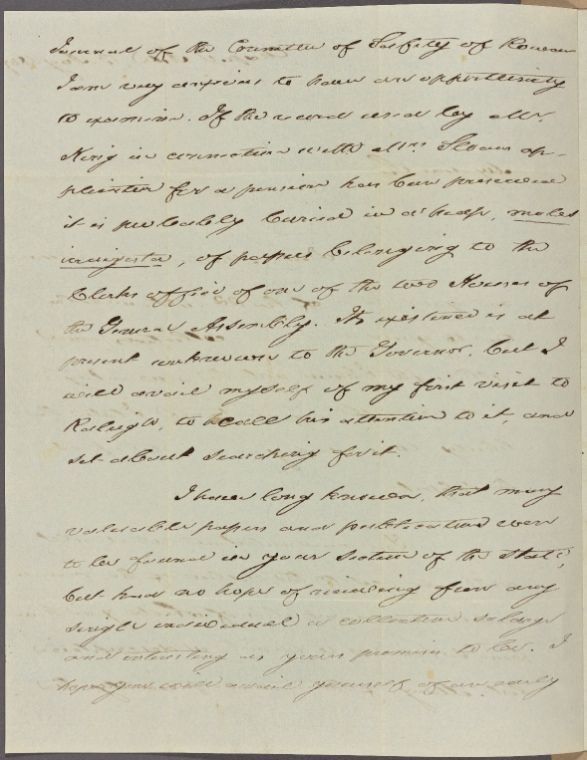 Journal of the Committee of Safety of Rowan
I am very anxious to have an opportunity
to examine. If the record used by Mr.
King in connection with Mrs. Sloans ap-
plication for a pension has been preserved
it is probably buried in a heap, moles
indigesta, of papers belonging to the
Clerks office of one of the two Houses of
the General Assembly. Its existence is at
present unknown to the Governor, but I
will avail myself of my first visit to
Raleigh, to call his attention to it, and
set about searching for it.
I have long known, that many
valuable papers and publications were
to be found in your section of the State,
but had no hope of receiving from any
single individual a collection so large
and interesting as yours promises to be. I
hope you will avail yourself of an early